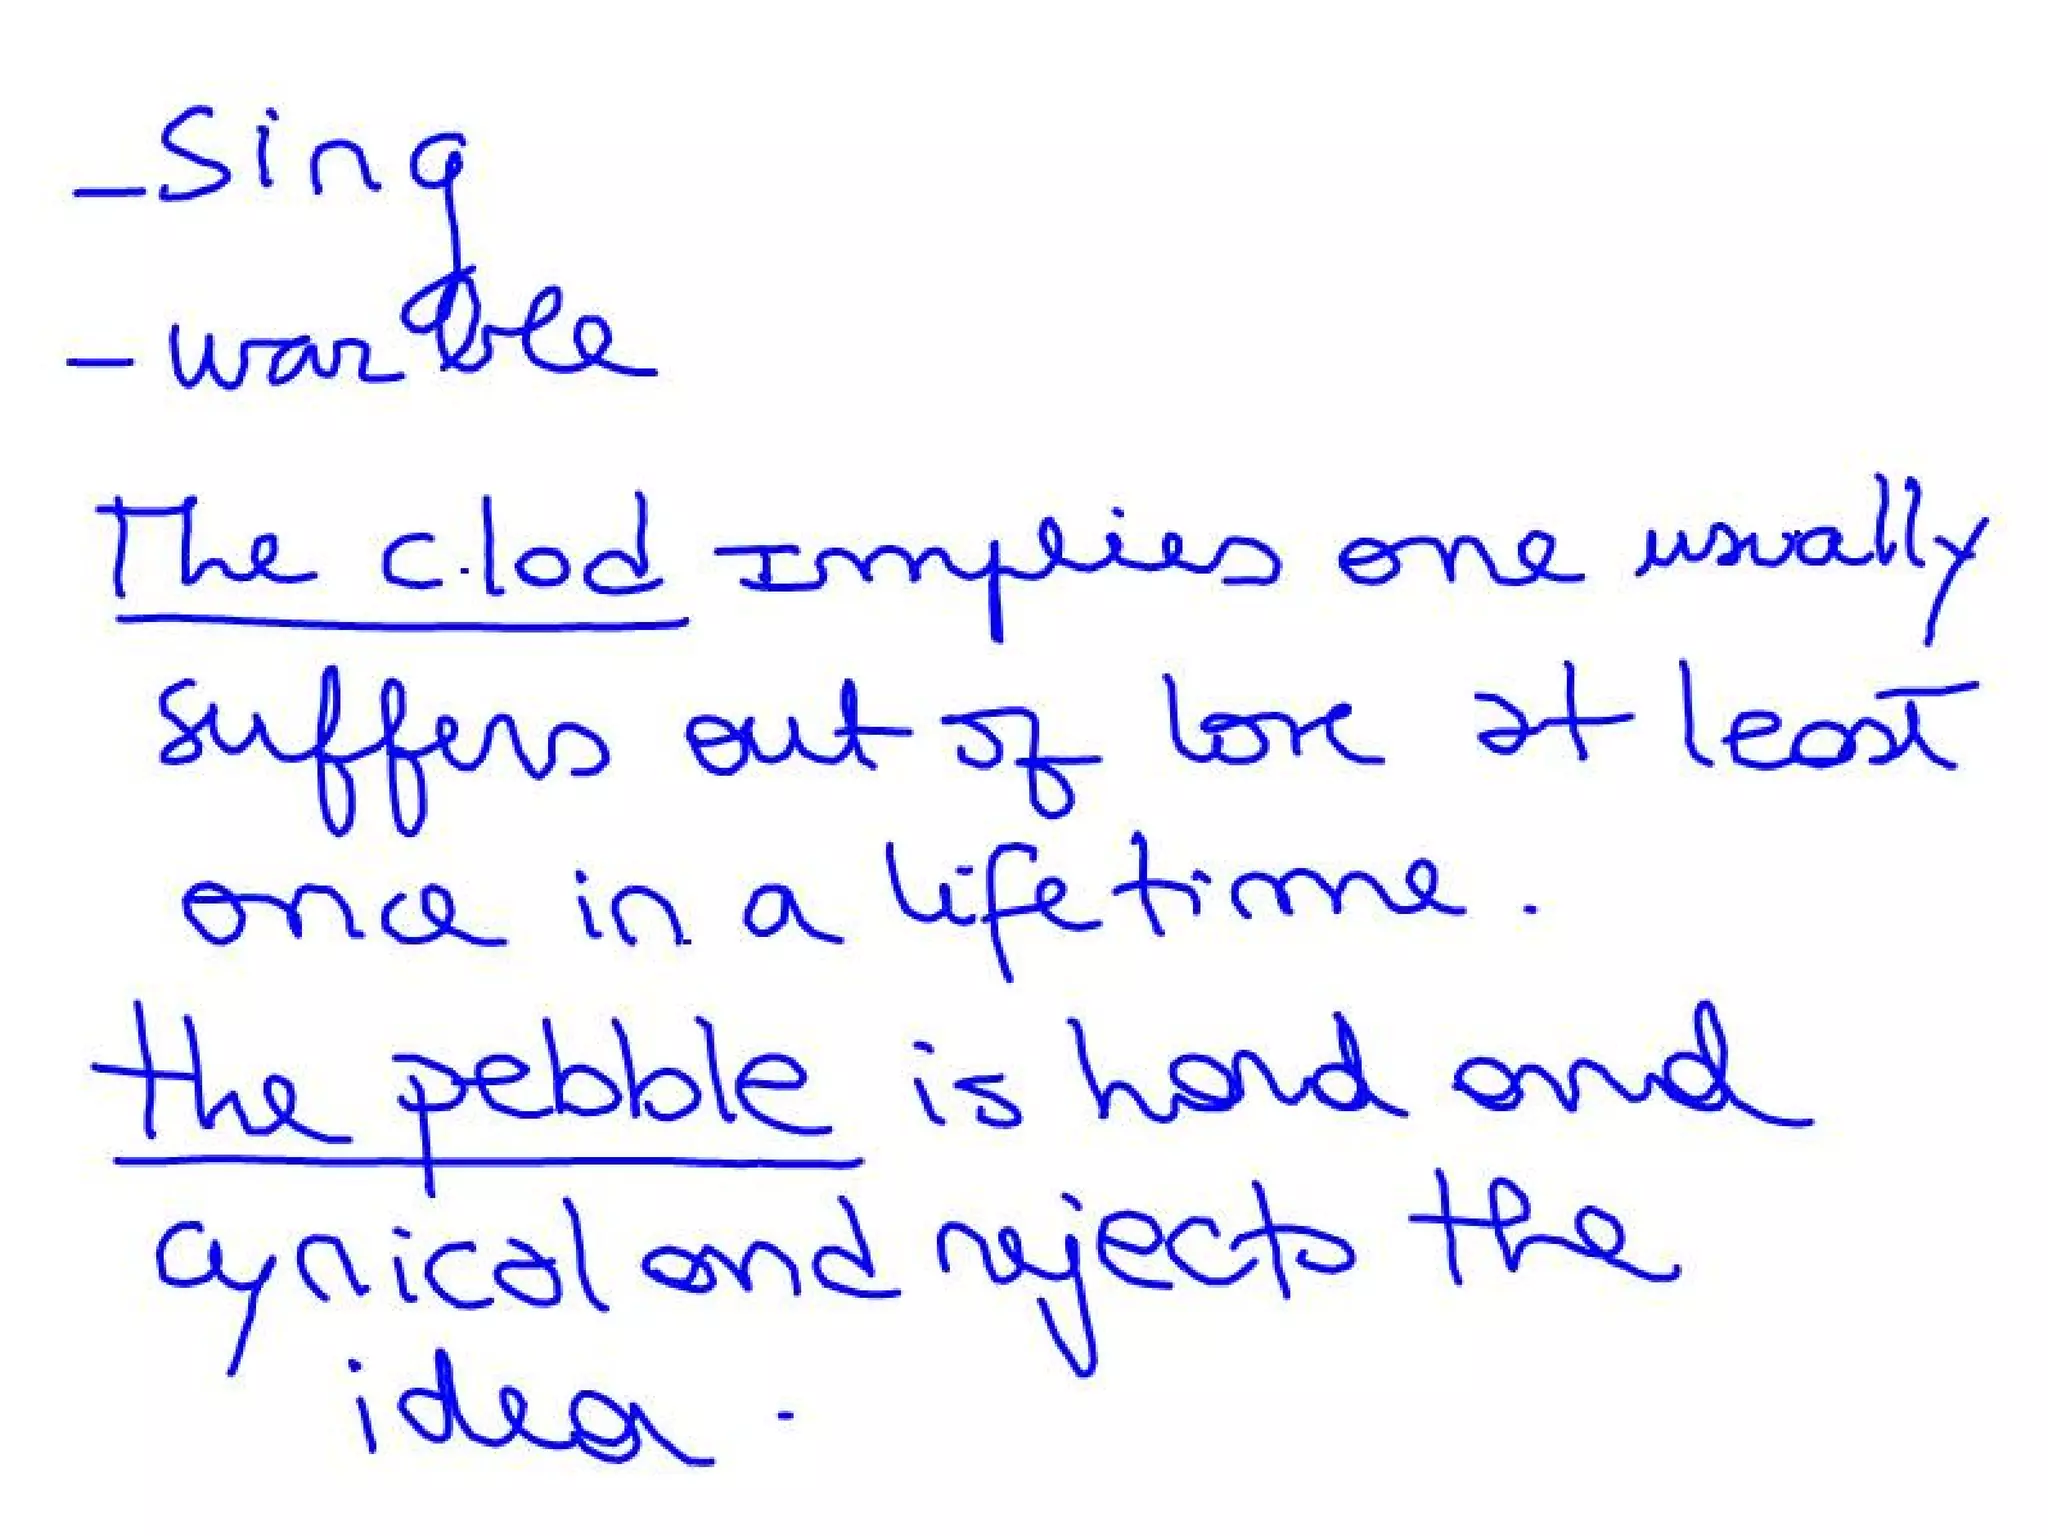 - Sing
- warble
The clod Implies one usually
suffers out of love at least
once in a lifetime.
the pebble is hard and
cynical and rejects the
idea.